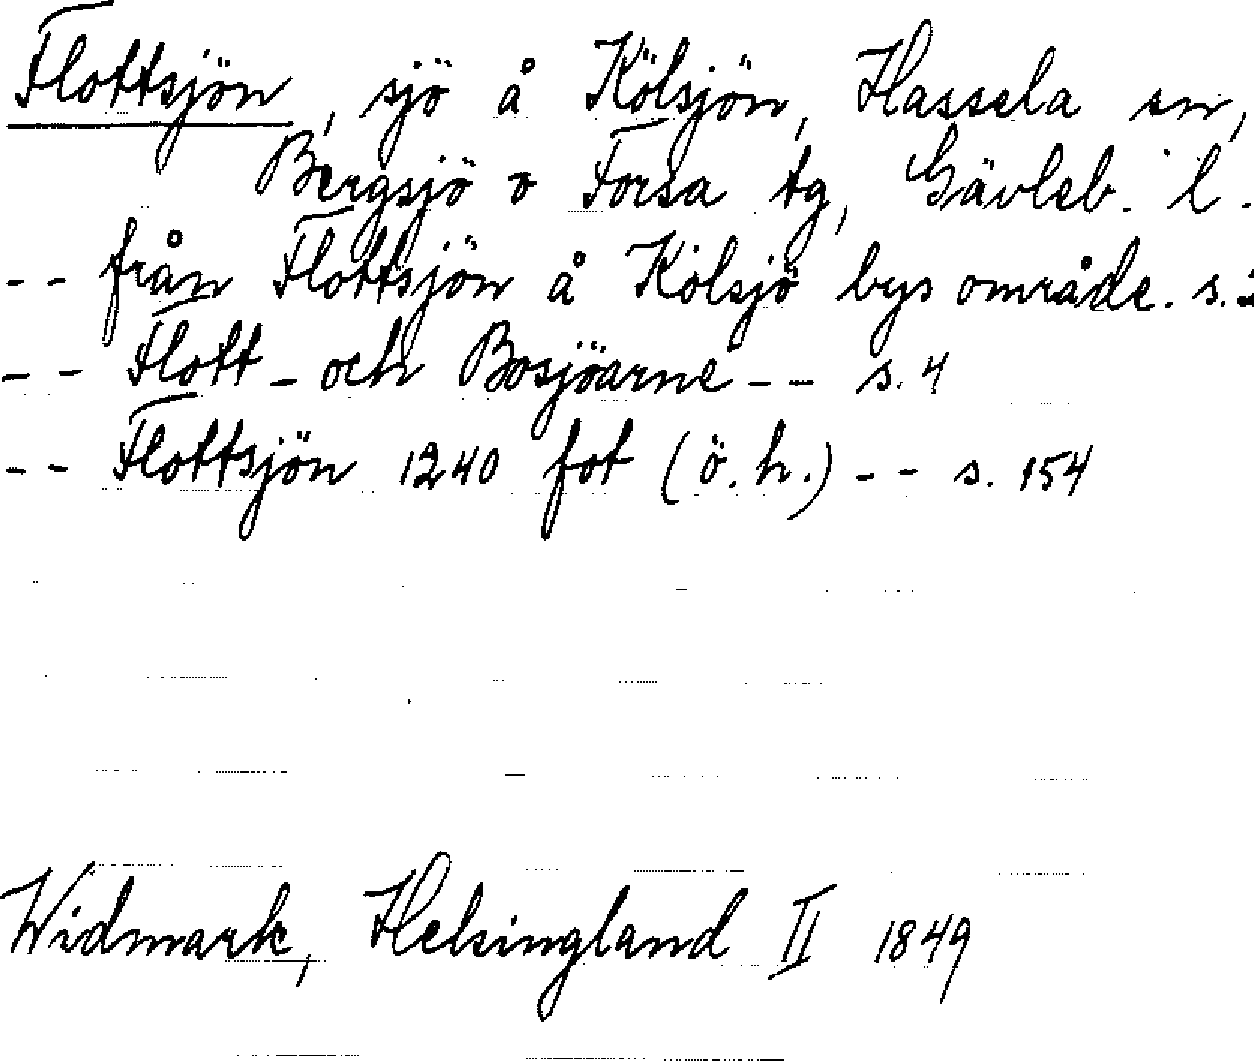 Flottsjön, sjö å Kölsjön, Hassela sn,
Bergsjö o Forsa tg, Gävleb. l.
-- från Flottsjön å Kölsjö bys område. s.
-- Flott- och Bosjöarne -- s. 4
-- Flottsjön 1240 fot (ö.h.) -- s. 154
Widmark, Helsingland II 1849